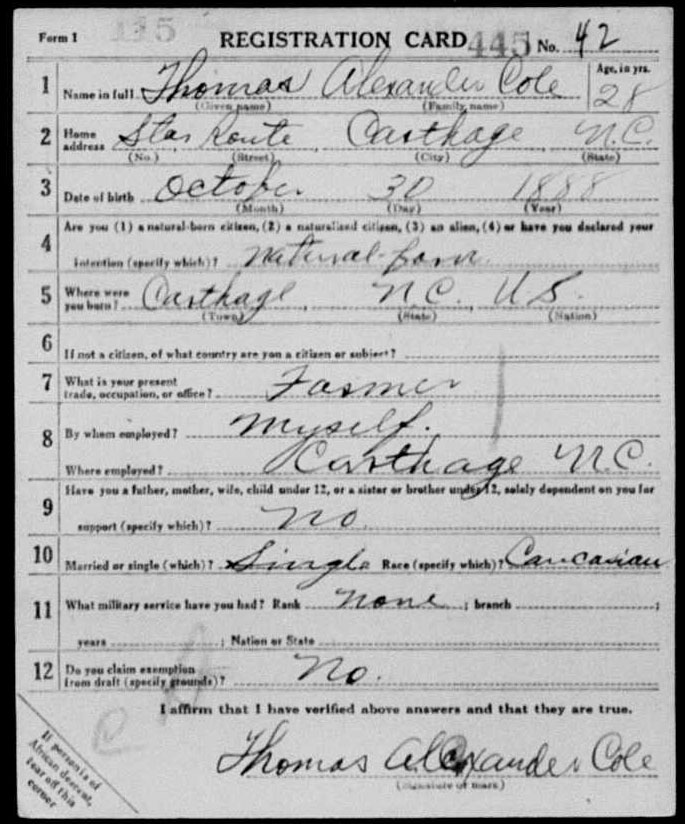 Form 1 115 REGISTRATION CARD 445 No. 42
1 Name in full Thomas Alexander Cole Age, in yrs. 28
(Given name) (Family name)
2 Home address Star Route Carthage N.C.
(No.) (Street) (City) (State)
3 Date of birth October 30 1888
(Month) (Day) (Year)
4 Are you (1) a natural-born citizen, (2) a naturalized citizen, (3) an alien, (4) or have you declared your
intention (specify which)? natural-born
5 Where were you born? Carthage, N.C. U.S.
(Town) (State) (Nation)
6 If not a citizen, of what country are you a citizen or subject?
7 What is your present trade, occupation, or office? Farmer
8 By whom employed? myself.
Where employed? Carthage N.C.
9 Have you a father, mother, wife, child under 12, or a sister or brother under 12, solely dependent on you for
support (specify which)? No
10 Married or single (which)? Single Race (specify which)? Caucasian
11 What military service have you had? Rank None ; branch ;
years ; Nation or State
12 Do you claim exemption from draft (specify grounds)? No.
I affirm that I have verified above answers and that they are true.
Thomas Alexander Cole
(Signature or mark)
If person is of
African descent,
tear off this
corner